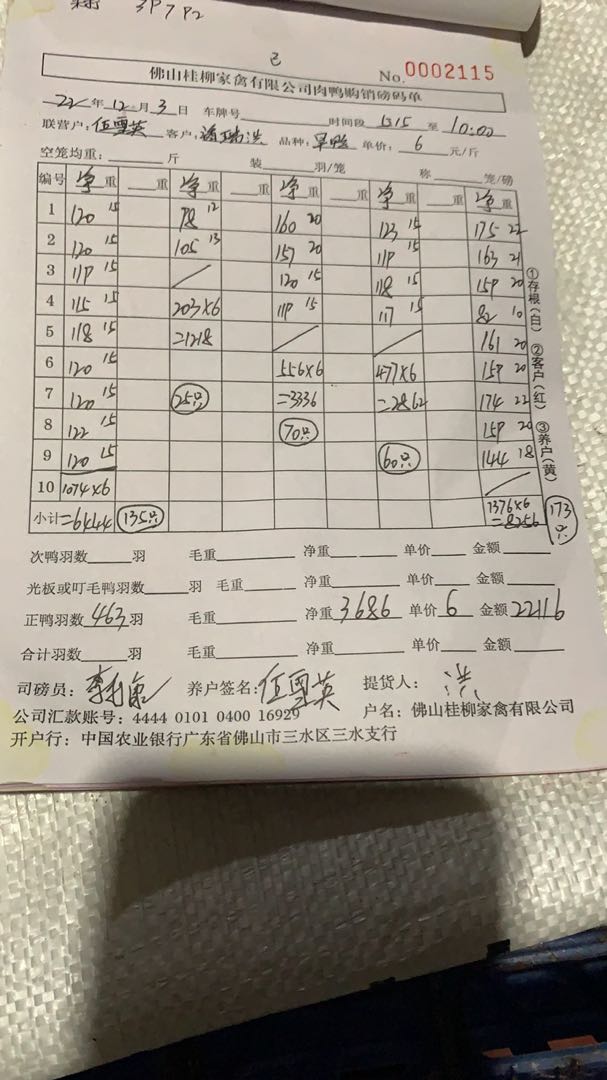 3P7P2
己
No.0002115
佛山桂柳家禽有限公司肉鸭购销磅码单
22年12月3日 车牌号 时间段 1315 至 10:00
联营户:伍雪英 客户: 品种:旱鸭 单价:6 元/斤
空笼均重: 斤 装 羽/笼 称 笼/磅
编号 净重 重 净重 重 净重 重 净重 重 净重
1 120 15 78 12 160 20 123 15 175 22
2 120 15 105 13 157 20 119 15 163 21
3 119 15 120 15 118 15 159 20
4 115 15 203×6 119 15 117 15 82 10
5 118 15 =1218 161 20
6 120 15 556×6 477×6 159 20
7 120 15 25只 =3336 =2862 174 22
8 122 15 70只 159 20
9 120 15 60只 144 18
10 1074×6
小计 =6444 135只 1376×6 =8256 173只
①存根(白) ②客户(红) ③养户(黄)
次鸭羽数 羽 毛重 净重 单价 金额
光板或叮毛鸭羽数 羽 毛重 净重 单价 金额
正鸭羽数 463 羽 毛重 净重 3686 单价 6 金额 22116
合计羽数 羽 毛重 净重 单价 金额
司磅员: 养户签名:伍雪英 提货人:洪
公司汇款账号:4444 0101 0400 16929 户名:佛山桂柳家禽有限公司
开户行:中国农业银行广东省佛山市三水区三水支行